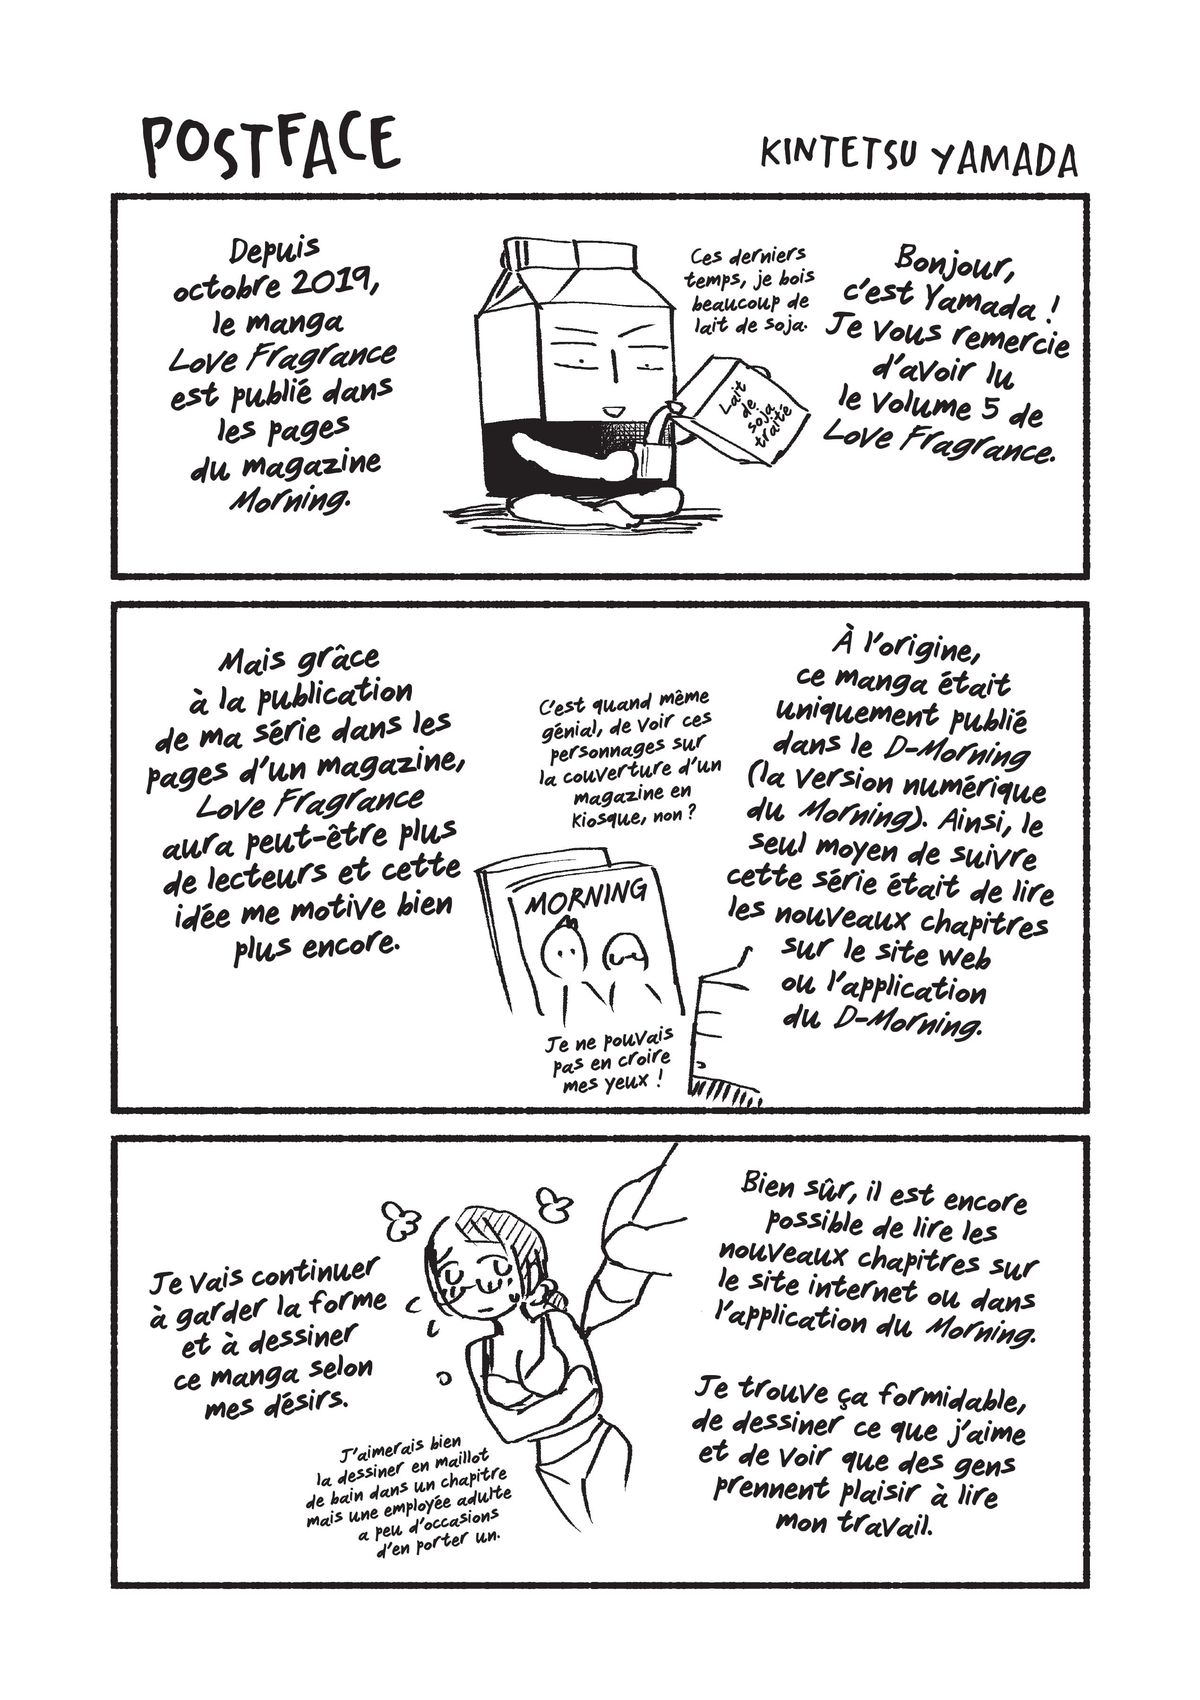 POSTFACE
KINTETSU YAMADA
Bonjour,
c'est Yamada !
Je vous remercie
d'avoir lu
le volume 5 de
Love Fragrance.
Ces derniers
temps, je bois
beaucoup de
lait de soja.
Lait
de
soja
traité
Depuis
octobre 2019,
le manga
Love Fragrance
est publié dans
les pages
du magazine
Morning.
À l'origine,
ce manga était
uniquement publié
dans le D-Morning
(la version numérique
du Morning). Ainsi, le
seul moyen de suivre
cette série était de lire
les nouveaux chapitres
sur le site web
ou l'application
du D-Morning.
C'est quand même
génial, de voir ces
personnages sur
la couverture d'un
magazine en
kiosque, non ?
MORNING
Je ne pouvais
pas en croire
mes yeux !
Mais grâce
à la publication
de ma série dans les
pages d'un magazine,
Love Fragrance
aura peut-être plus
de lecteurs et cette
idée me motive bien
plus encore.
Bien sûr, il est encore
possible de lire les
nouveaux chapitres sur
le site internet ou dans
l'application du Morning.
Je trouve ça formidable,
de dessiner ce que j'aime
et de voir que des gens
prennent plaisir à lire
mon travail.
Je vais continuer
à garder la forme
et à dessiner
ce manga selon
mes désirs.
J'aimerais bien
la dessiner en maillot
de bain dans un chapitre
mais une employée adulte
a peu d'occasions
d'en porter un.